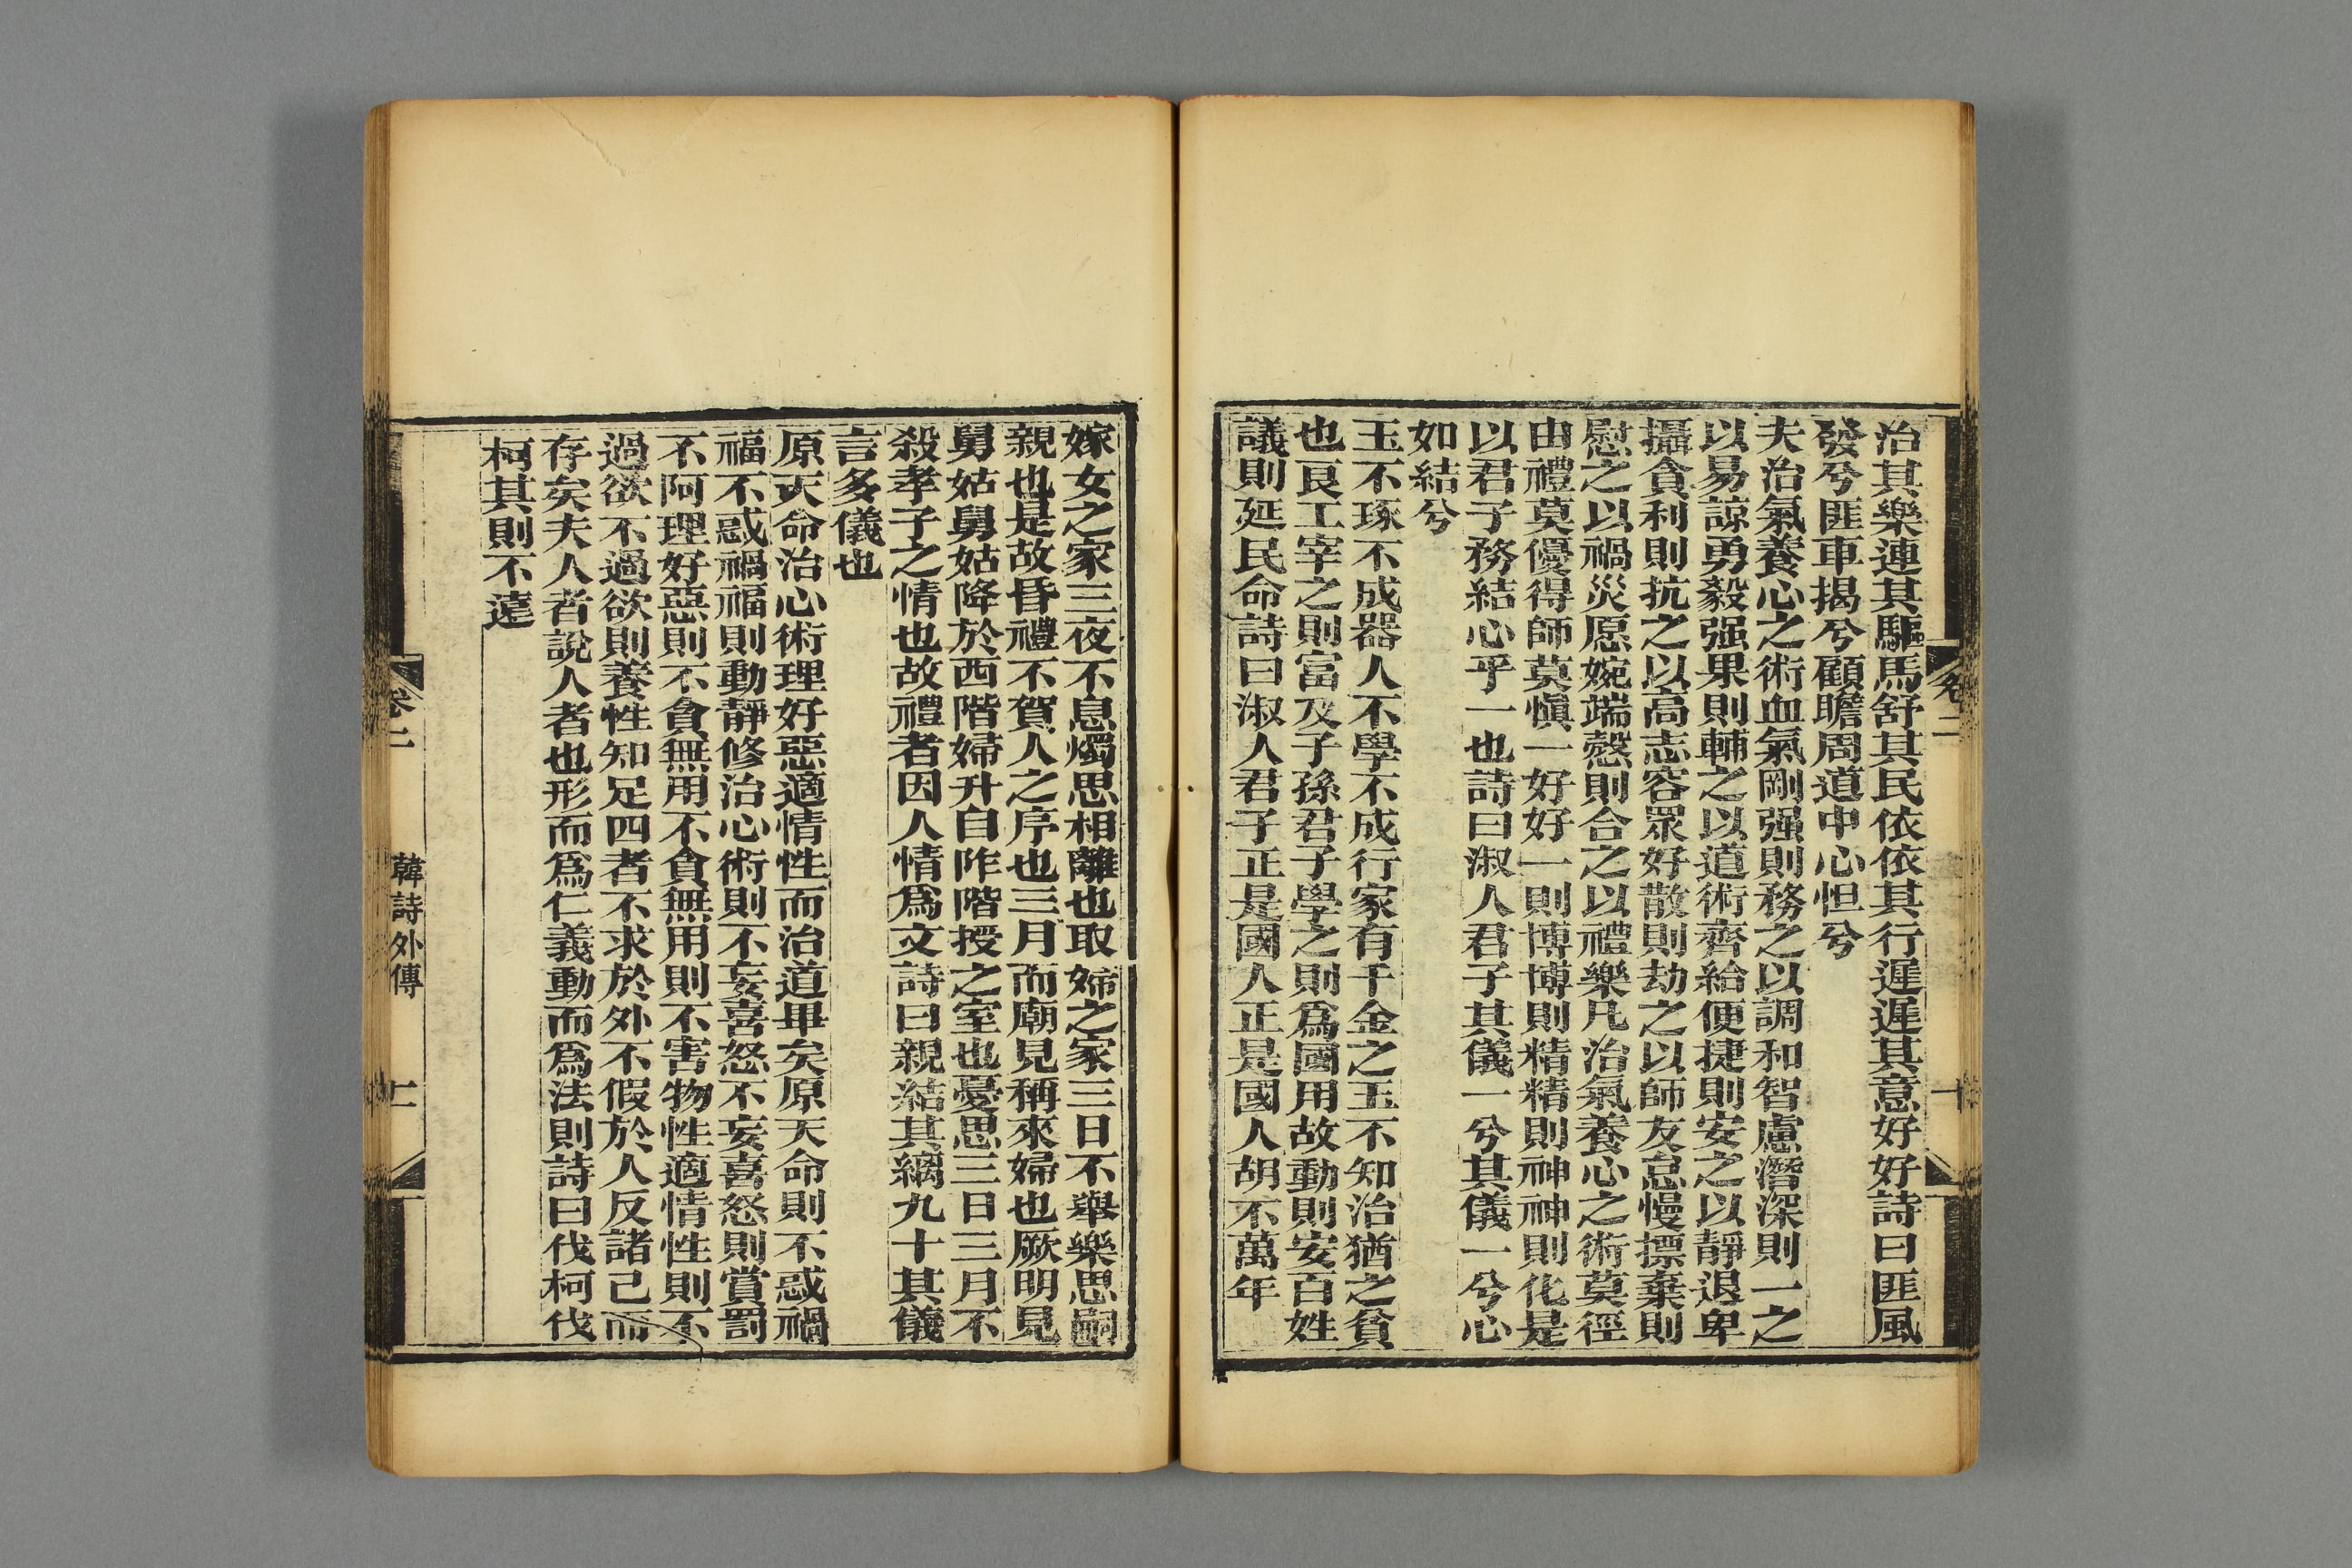 治其樂連其驅馬舒其民依依其行遲遲其意好好詩曰匪風
發兮匪車揭兮顧瞻周道中心怛兮
夫治氣養心之術血氣剛强則務之以調和智慮潛深則一之
以易諒勇毅强果則輔之以道術齊給便捷則安之以靜退卑
攝貪利則抗之以高志容眾好散則劫之以師友怠慢摽棄則
慰之以禍災愿婉端愨則合之以禮樂凡治氣養心之術莫徑
由禮莫優得師莫愼一好好一則博博則精精則神神則化是
以君子務結心乎一也詩曰淑人君子其儀一兮其儀一兮心
如結兮
玉不琢不成器人不學不成行家有千金之玉不知治猶之貧
也良工宰之則富及子孫君子學之則爲國用故動則安百姓
議則延民命詩曰淑人君子正是國人正是國人胡不萬年
卷二
十
嫁女之家三夜不息燭思相離也取婦之家三日不舉樂思嗣
親也是故昏禮不賀人之序也三月而廟見稱來婦也厥明見
舅姑舅姑降於西階婦升自阼階授之室也憂思三日三月不
殺孝子之情也故禮者因人情爲文詩曰親結其縭九十其儀
言多儀也
原天命治心術理好惡適情性而治道畢矣原天命則不惑禍
福不惑禍福則動靜修治心術則不妄喜怒不妄喜怒則賞罰
不阿理好惡則不貪無用不貪無用則不害物性適情性則不
過欲不過欲則養性知足四者不求於外不假於人反諸己而
存矣夫人者說人者也形而爲仁義動而爲法則詩曰伐柯伐
柯其則不遠
卷二
韓詩外傳